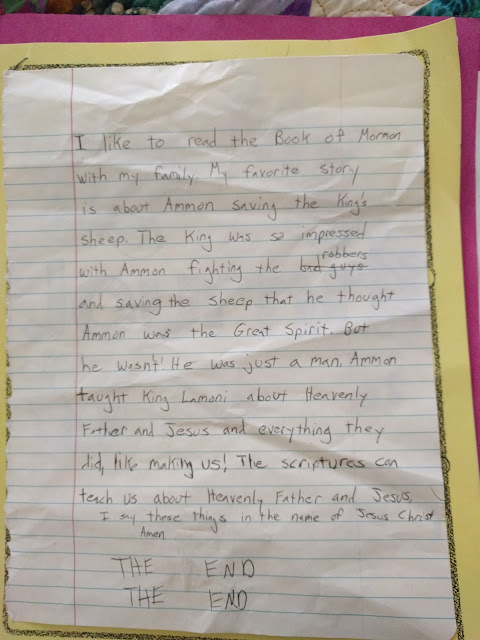 I like to read the Book of Mormon
with my family. My favorite story
is about Ammon saving the King's
sheep. The King was so impressed
robbers
with Ammon fighting the bad guys
and saving the sheep that he thought
Ammon was the Great Spirit. But
he wasn't! He was just a man. Ammon
taught King Lamoni about Heavenly
Father and Jesus and everything they
did, like making us! The scriptures can
teach us about Heavenly Father and Jesus.
I say these things in the name of Jesus Christ
Amen
THE END
THE END